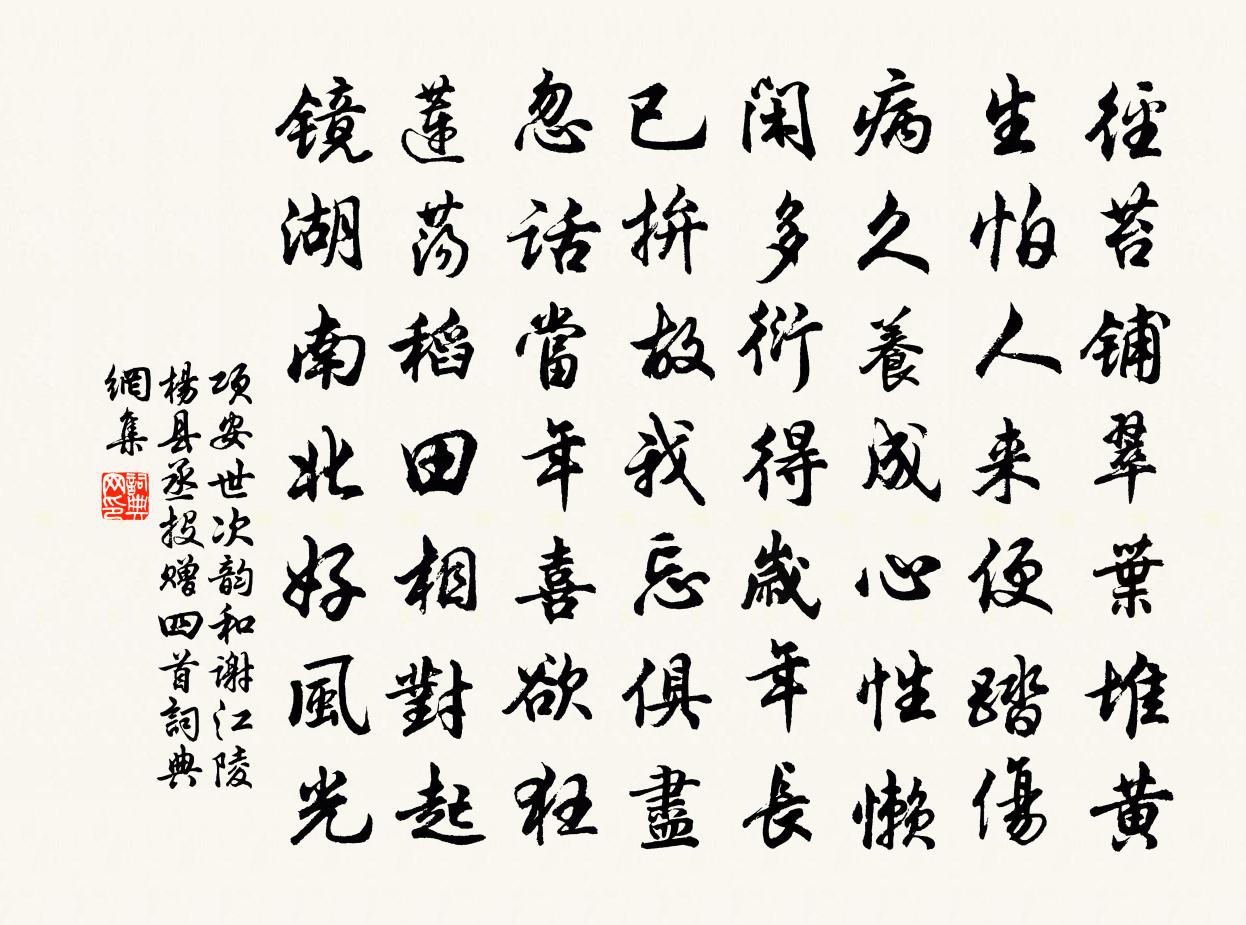 徑苔铺翠葉堆黄
生怕人来便踏傷
病久養成心性懒
閑多衍得歲年長
已拚故我忘俱盡
忽話當年喜欲狂
蓮荡稻田相對起
镜湖南北好風光
项安世次韵和谢江陵
楊县丞投赠四首詞典
網集
詞典网印